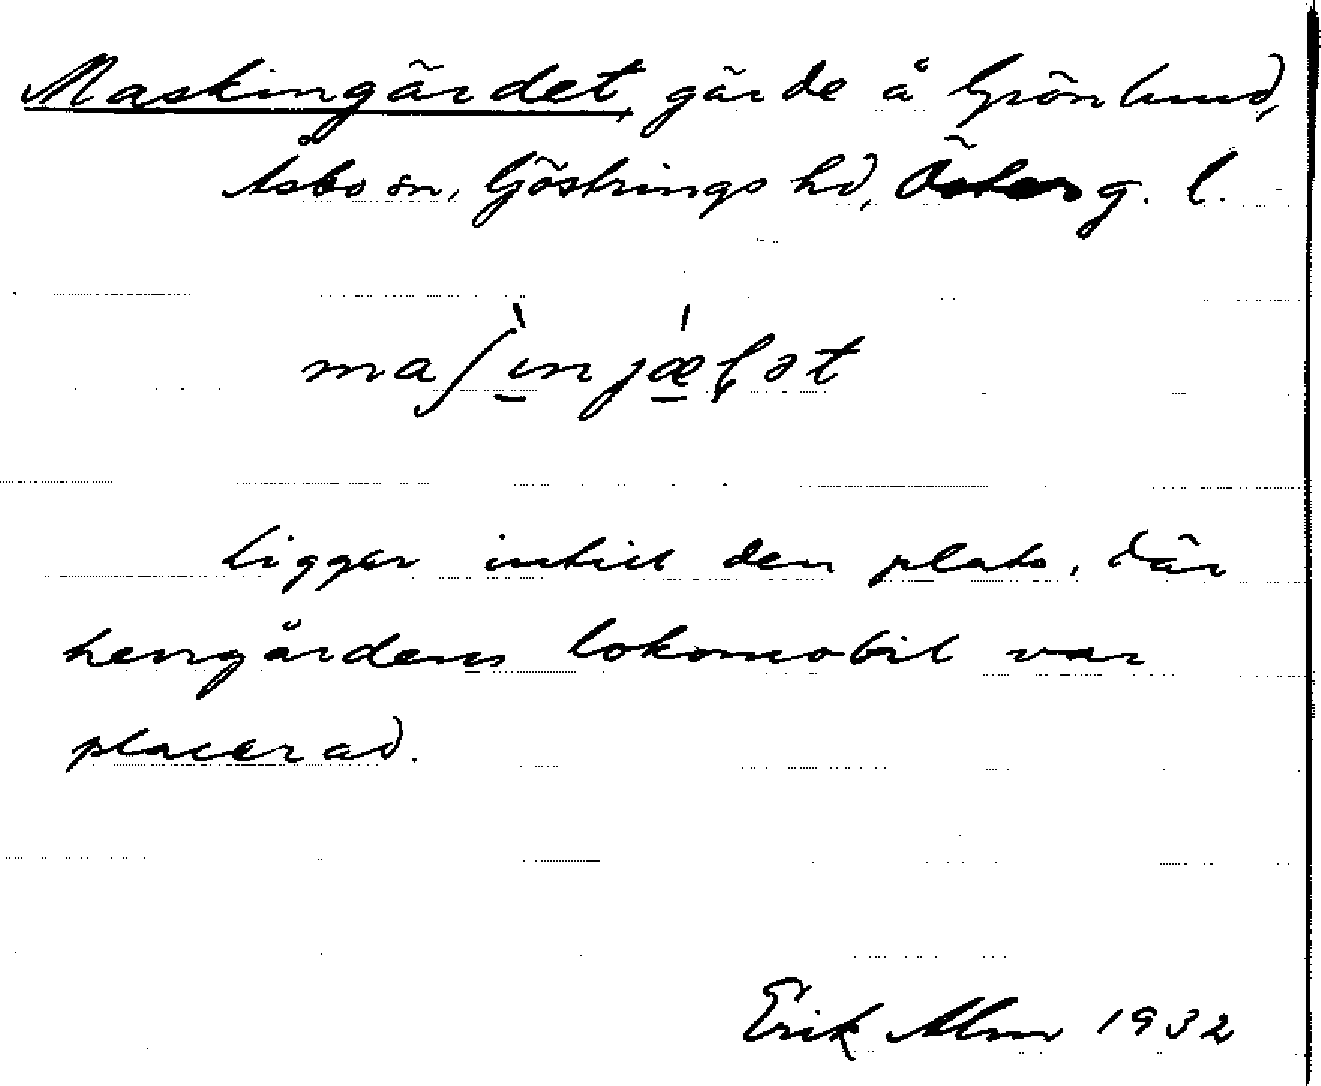 Maskingärdet, gärde å Grönlund,
Åsbo sn, Göstrings hd, Österg. l.
maʃìnjǽɭət
Ligger intill den plats, där
herrgårdens lokomobil var
placerad.
Erik Alm 1932